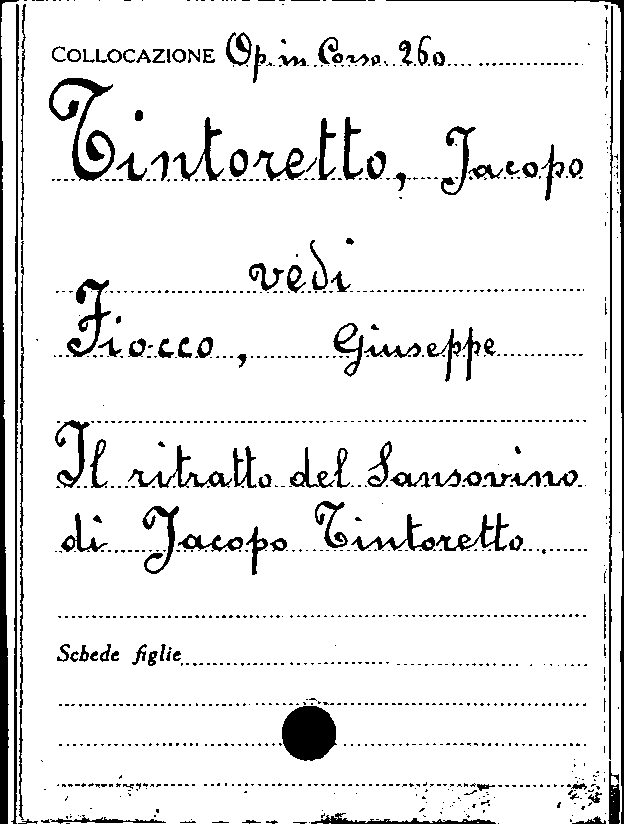 COLLOCAZIONE Op. in Corso. 260
Tintoretto, Jacopo
vedi
Fiocco, Giuseppe
Il ritratto del Sansovino
di Jacopo Tintoretto.
Schede figlie